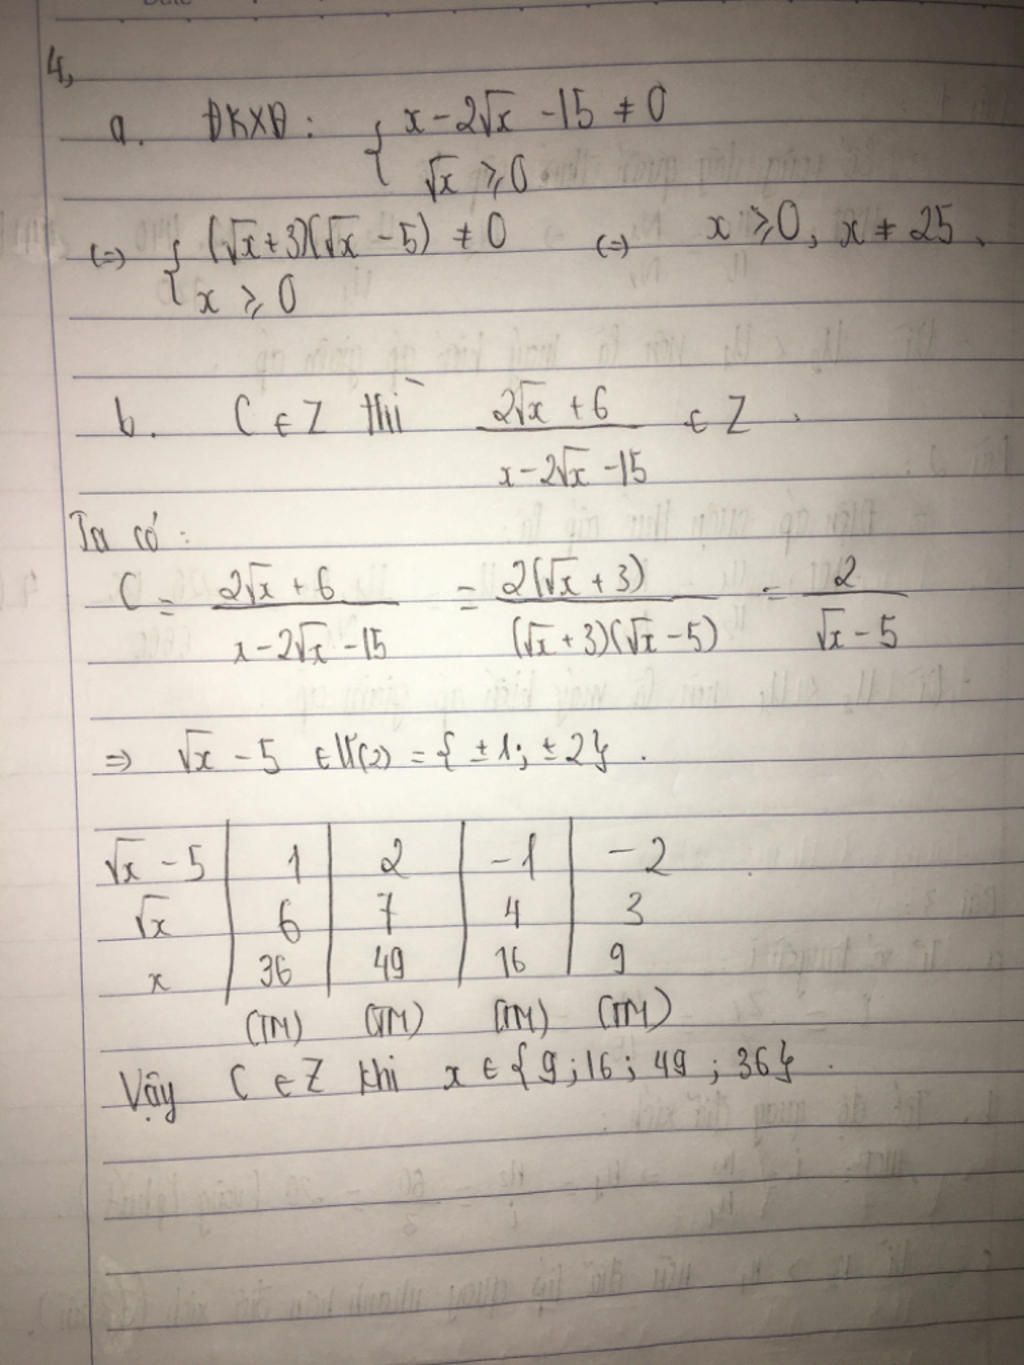 4,
a. ĐKXĐ: { x - 2√x - 15 ≠ 0
√x ≥ 0
(=) { (√x + 3)(√x - 5) ≠ 0 (=) x ≥ 0, x ≠ 25.
x ≥ 0
b. C ∈ Z thì (2√x + 6)/(x - 2√x - 15) ∈ Z.
Ta có:
C = (2√x + 6)/(x - 2√x - 15) = 2(√x + 3)/((√x + 3)(√x - 5)) = 2/(√x - 5)
=> √x - 5 ∈ Ư(2) = {±1; ±2}.
√x - 5 | 1 | 2 | -1 | -2
√x | 6 | 7 | 4 | 3
x | 36 | 49 | 16 | 9
(TM) (TM) (TM) (TM)
Vậy C ∈ Z khi x ∈ {9; 16; 49; 36}.